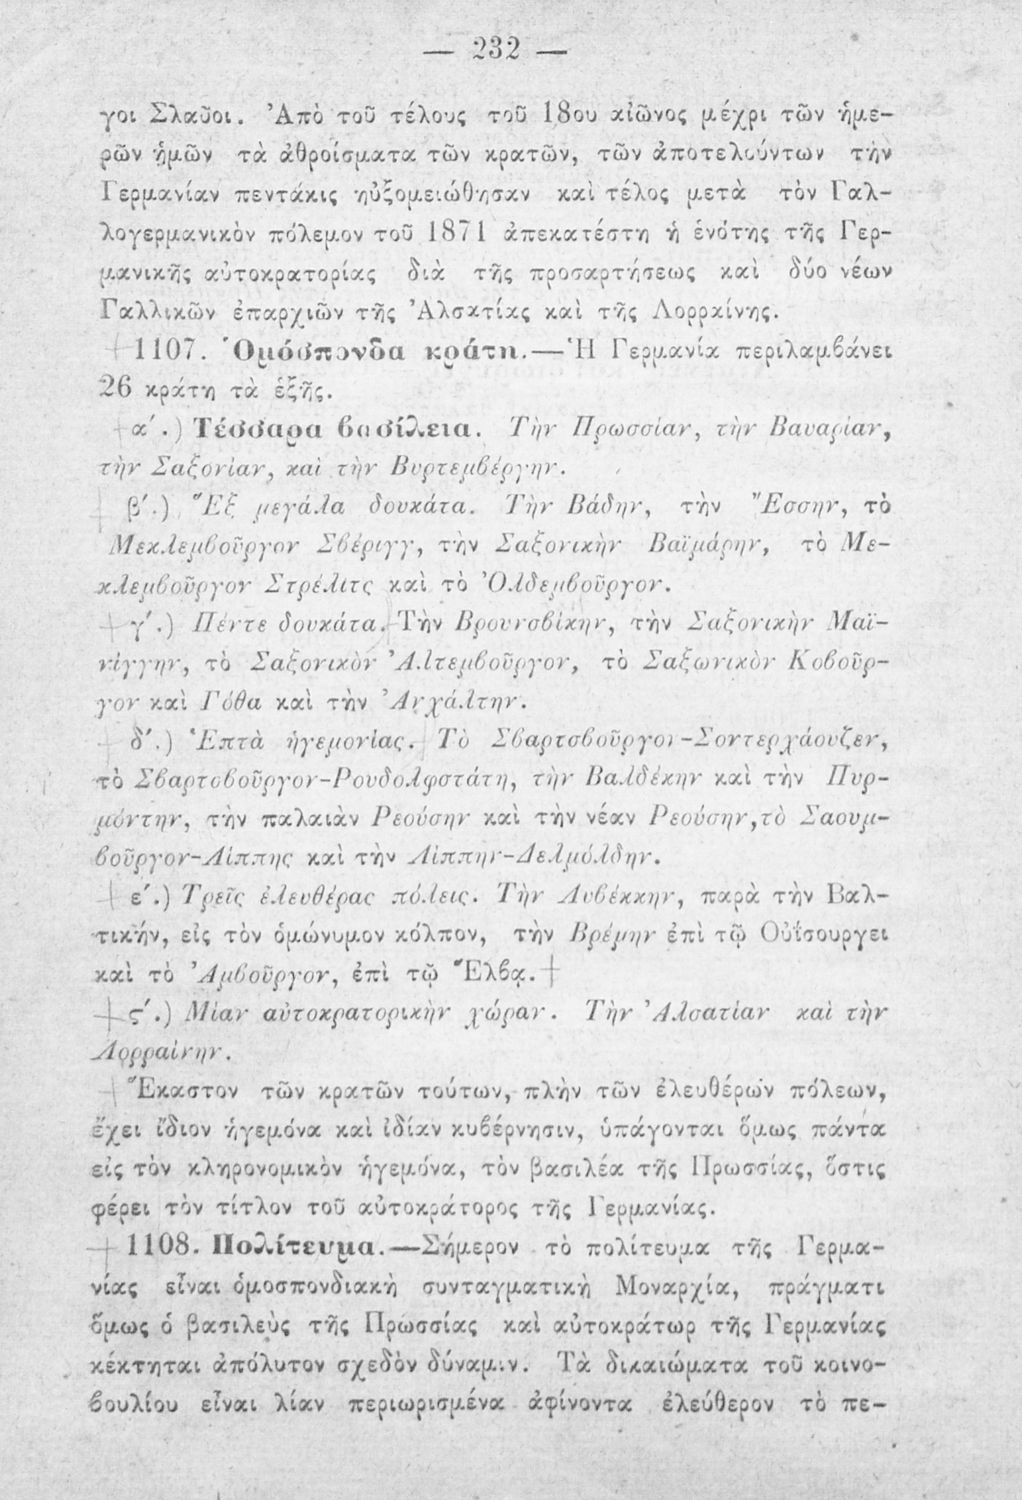 — 232 —
γοι Σλαῦοι. Ἀπὸ τοῦ τέλους τοῦ 18ου αἰῶνος μέχρι τῶν ἡμε-
ρῶν ἡμῶν τὰ ἀθροίσματα τῶν κρατῶν, τῶν ἀποτελούντων τὴν
Γερμανίαν πεντάκις ηὐξομειώθησαν καὶ τέλος μετὰ τὸν Γαλ-
λογερμανικὸν πόλεμον τοῦ 1871 ἀπεκατέστη ἡ ἑνότης τῆς Γερ-
μανικῆς αὐτοκρατορίας διὰ τῆς προσαρτήσεως καὶ δύο νέων
Γαλλικῶν ἐπαρχιῶν τῆς Ἀλσατίας καὶ τῆς Λορραίνης.
1107. Ὁμόσπονδα κράτη.—Ἡ Γερμανία περιλαμβάνει
26 κράτη τὰ ἑξῆς.
α΄.) Τέσσαρα βασίλεια. Τὴν Πρωσσίαν, τὴν Βαυαρίαν,
τὴν Σαξονίαν, καὶ τὴν Βυρτεμβέργην.
β΄.) Ἓξ μεγάλα δουκάτα. Τὴν Βάδην, τὴν Ἔσσην, τὸ
Μεκλεμβοῦργον Σβέριγγ, τὴν Σαξονικὴν Βαϊμάρην, τὸ Με-
κλεμβοῦργον Στρέλιτς καὶ τὸ Ὀλδεμβοῦργον.
γ΄.) Πέντε δουκάτα. Τὴν Βρουνσβίκην, τὴν Σαξονικὴν Μαϊ-
νίγγην, τὸ Σαξονικὸν Ἀλτεμβοῦργον, τὸ Σαξωνικὸν Κοβοῦρ-
γον καὶ Γόθα καὶ τὴν Ἀνχάλτην.
δ΄.) Ἑπτὰ ἡγεμονίας. Τὸ Σβαρτσβοῦργον-Σοντερχάουζεν,
τὸ Σβαρτσβοῦργον-Ρουδολφστάτη, τὴν Βαλδέκην καὶ τὴν Πυρ-
μόντην, τὴν παλαιὰν Ρεούσην καὶ τὴν νέαν Ρεούσην,τὸ Σαουμ-
βοῦργον-Λίππης καὶ τὴν Λίππην-Δελμόλδην.
ε΄.) Τρεῖς ἐλευθέρας πόλεις. Τὴν Λυβέκκην, παρὰ τὴν Βαλ-
τικήν, εἰς τὸν ὁμώνυμον κόλπον, τὴν Βρέμην ἐπὶ τῷ Οὐΐσουργει
καὶ τὸ Ἀμβοῦργον, ἐπὶ τῷ Ἔλβᾳ.
ς΄.) Μίαν αὐτοκρατορικὴν χώραν. Τὴν Ἀλσατίαν καὶ τὴν
Λορραίνην.
Ἕκαστον τῶν κρατῶν τούτων, πλὴν τῶν ἐλευθέρων πόλεων,
ἔχει ἴδιον ἡγεμόνα καὶ ἰδίαν κυβέρνησιν, ὑπάγονται ὅμως πάντα
εἰς τὸν κληρονομικὸν ἡγεμόνα, τὸν βασιλέα τῆς Πρωσσίας, ὅστις
φέρει τὸν τίτλον τοῦ αὐτοκράτορος τῆς Γερμανίας.
1108. Πολίτευμα.—Σήμερον τὸ πολίτευμα τῆς Γερμα-
νίας εἶναι ὁμοσπονδιακὴ συνταγματικὴ Μοναρχία, πράγματι
ὅμως ὁ βασιλεὺς τῆς Πρωσσίας καὶ αὐτοκράτωρ τῆς Γερμανίας
κέκτηται ἀπόλυτον σχεδὸν δύναμιν. Τὰ δικαιώματα τοῦ κοινο-
βουλίου εἶναι λίαν περιωρισμένα ἀφίνοντα ἐλεύθερον τὸ πε-